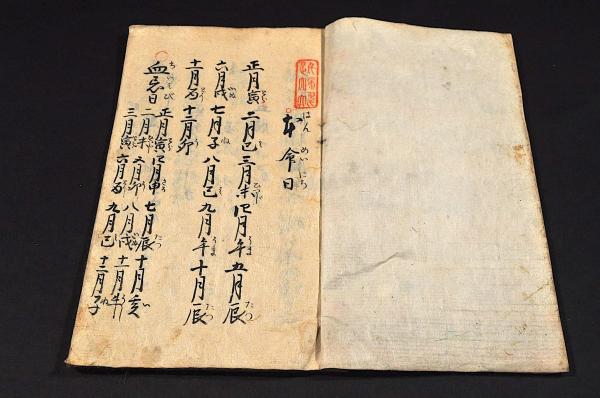 本命日
正月寅 二月巳 三月未 四月午 五月辰
六月戌 七月子 八月巳 九月午 十月辰
十一月酉 十二月卯
血忌日
正月寅 四月申 七月辰 十月亥
二月未 五月卯 八月戌 十一月午
三月寅 六月酉 九月巳 十二月子